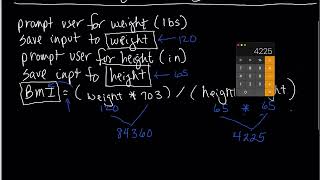 prompt user for weight (lbs)
save input to weight ← 120
prompt user for height (in)
save inpt to height ← 65
BmI = (weight * 703) / (heig
120 65 * 65
84360 4225
4225